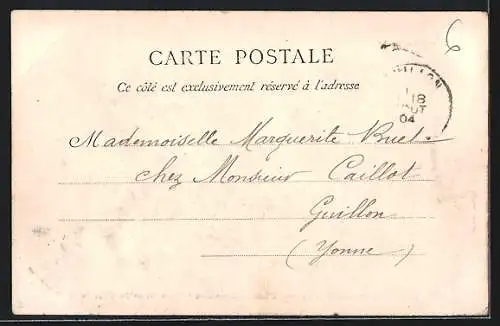 6
CARTE POSTALE
Ce côté est exclusivement réservé à l'adresse
18
04
Mademoiselle Marguerite
chez Monsieur Caillot
Guillon
(Yonne)